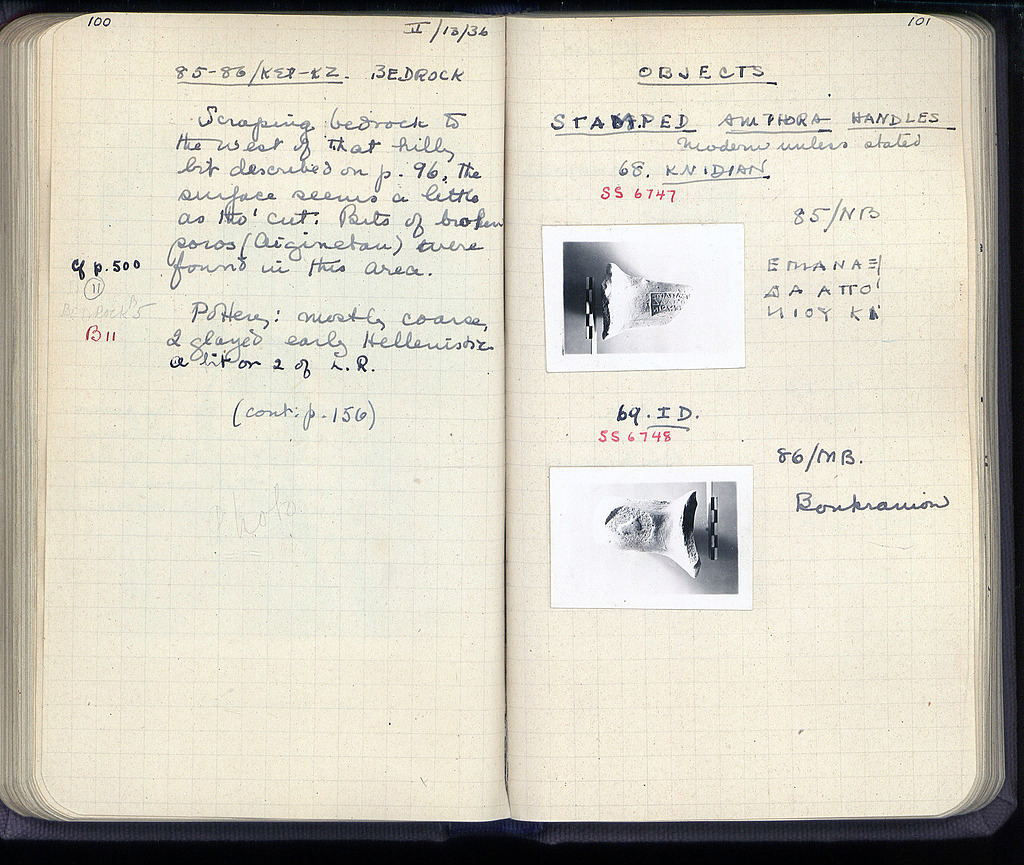 100
II/13/36
85-86/ΚΞΤ-ΚΖ. BEDROCK
Scraping bedrock to
the west of that hilly
bit described on p. 96, the
surface seems a little
as tho' cut. Bits of broken
poros (Aiginetan) were
found in this area.
cf p. 500
11
BEDROCK
B11
Pottery: mostly coarse,
2 glazed early Hellenistic
a bit or 2 of L.R.
(cont. p. 156)
Photo
101
OBJECTS
STAMPED AMPHORA HANDLES
Modern unless stated
68. KNIDIAN
SS 6747
85/NB
ΕΠΙΑΝΑΞΙ
ΔΑ ΑΠΟ
ΝΙΟΥ ΚΙ
69. ID.
SS 6748
86/MB.
Boukranion